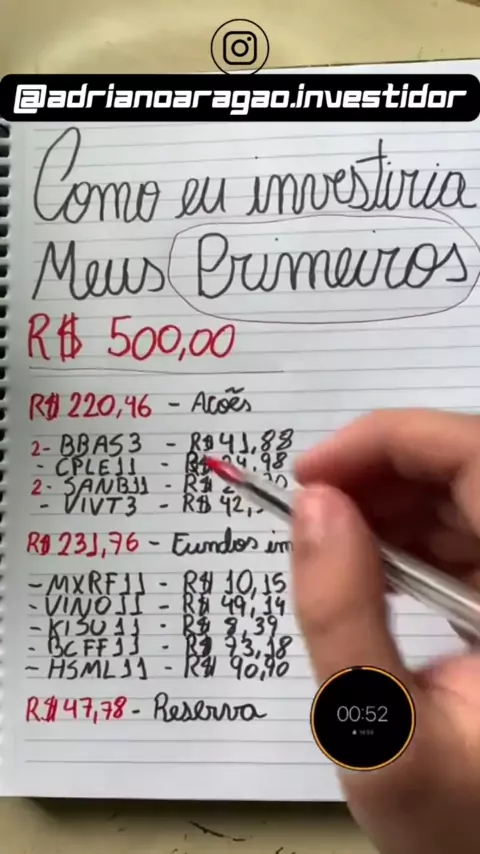 @adrianoaragao.investidor
Como eu investiria
Meus Primeiros
R$ 500,00
R$ 220,46 - Acões
2- BBAS3 - R$ 41,88
- CPLE11 - R$ 34,98
2- SANB11 - R$
- VIVT3 - R$ 42,
R$ 231,76 - Fundos im
- MXRF11 - R$ 10,15
- VINO11 - R$ 49,14
- KISU11 - R$ 8,39
- BCFF11 - R$ 73,18
- HSML11 - R$ 90,90
R$ 47,78 - Reserva
00:52